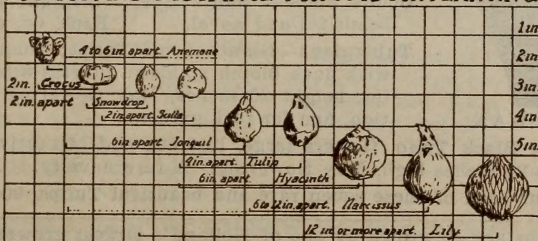 1in
4 to 6 in. apart Anemone
2in
2in. Crocus
3in.
2 in. apart Snowdrop
2 in. apart Scilla
4in
6 in apart Jonquil
5in.
4 in. apart Tulip
6in. apart. Hyacinth
6 to 12 in. apart. Narcissus
12 in or more apart. Lily